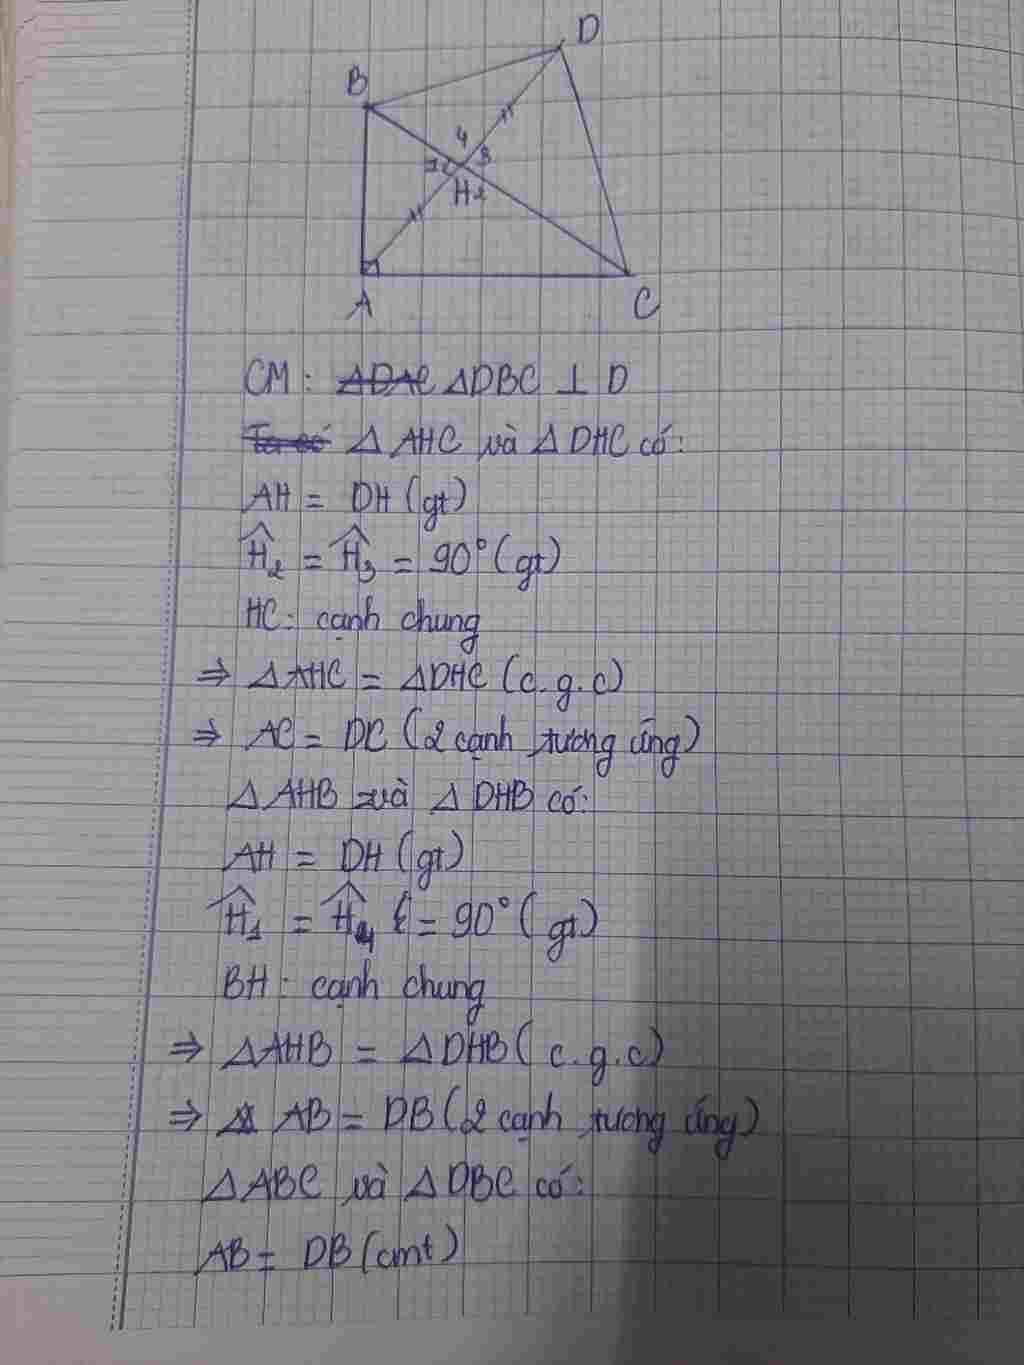 D
B
4
1
3
H 2
A
C
CM: ΔDAC ΔDBC ⊥ D
Ta có Δ AHC và Δ DHC có:
AH = DH (gt)
Ĥ₂ = Ĥ₃ = 90° (gt)
HC: cạnh chung
⇒ ΔAHC = ΔDHC (c.g.c)
⇒ AC = DC (2 cạnh tương ứng)
Δ AHB và Δ DHB có:
AH = DH (gt)
Ĥ₁ = Ĥ₄ = 90° (gt)
BH: cạnh chung
⇒ ΔAHB = ΔDHB (c.g.c)
⇒ AB = DB (2 cạnh tương ứng)
ΔABC và ΔDBC có:
AB = DB (cmt)